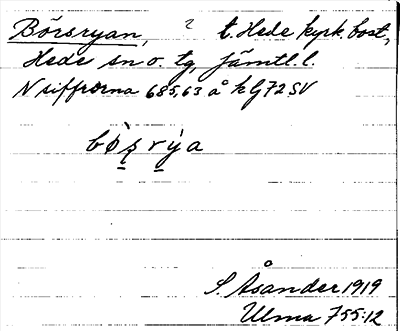 Börsryan, ? t. Hede kyrk. bost.,
Hede sn o. tg, Jämtl. l.
N siffrorna 685,63 å k G72 SV
bö̀ʂrýa
S. Åsander 1919
Ulma 755:12